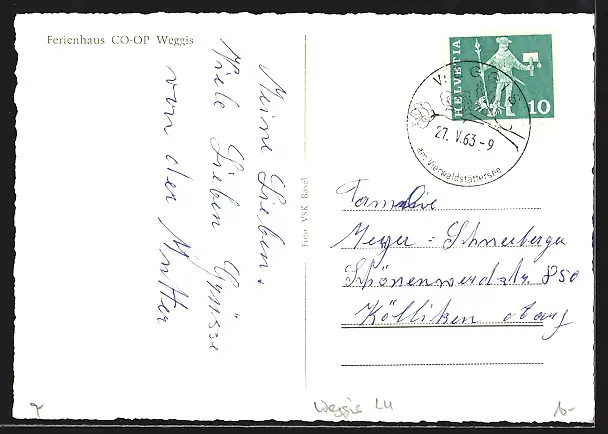 Ferienhaus CO-OP Weggis
Meine Lieben.
Viele Lieben Grüsse
von der Mutter
Foto VSK Basel
HELVETIA
10
WEGGIS
27. V. 63-9
am Vierwaldstättersee
Familie
Meyer-Schneeberger
Schönenwerdstr. 850
Kölliken
Weggis LU